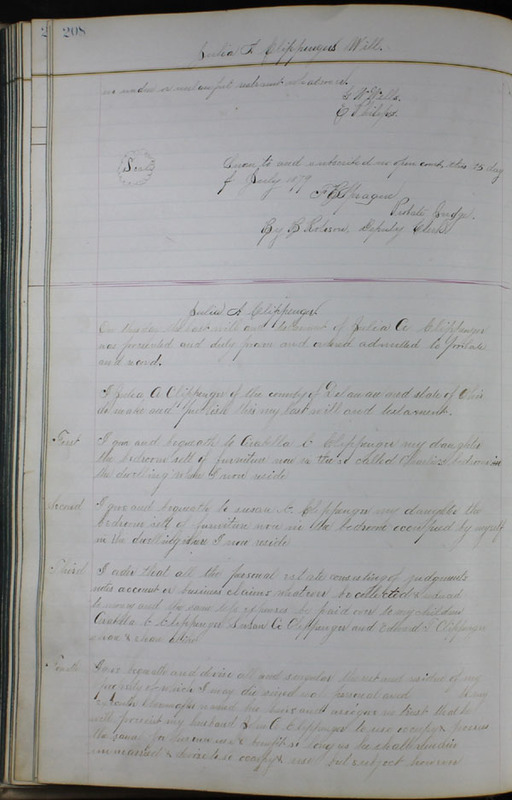 208
Julia A Clippenger Will.
no undue or unlawful restraint whatever.
G W Wells.
E Philips.
Seal
Sworn to and subscribed in open court this 25 day
of July 1879
F B Sprague
Probate Judge.
By B Robison Deputy Clerk
Julia A Clippenger
This day the last will and testament of Julia A Clippenger
was presented and duly proven and ordered admitted to Probate
and record.
I Julia A Clippenger of the county of Delaware and state of Ohio
do make and publish this my last will and testament.
First I give and bequeath to Orabella C Clippenger my daughter
the bedroom sett of furniture now in the so called bedroom in
the dwelling where I now reside
Second I give and bequeath to Susan C. Clippenger my daughter the
bedroom sett of furniture now in the bedroom occupied by myself
in the dwelling where I now reside
Third I order that all the personal estate consisting of judgments
notes account or business claims whatever be collected & reduced
to money and the same be paid over to my children
Orabella C Clippenger Susan C Clippenger and Edward T. Clippenger
share & share alike
Fourth I give bequeath and devise all and singular the rest and residue of my
property of which I may die seized not personal and to my
in trust that he
will permit my husband Clippenger to use occupy & possess
the same for his own use & benefit so long as he shall remain
unmarried & desire to so occupy & use but subject however